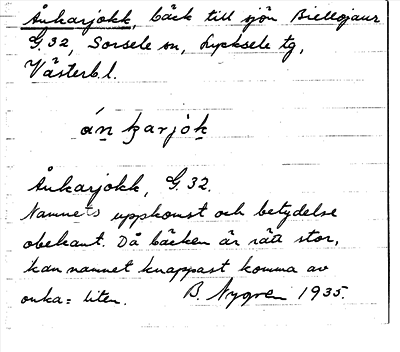 Ånkarjokk, bäck till sjön Biellojaur
G. 32, Sorsele sn, Lycksele tg,
Västerb. l.
án ḵarjoḵ
Ånkarjokk, G. 32.
Namnets uppkomst och betydelse
obekant. Då bäcken är rätt stor,
kan namnet knappast komma av
onka = liten. B. Nygren 1935.